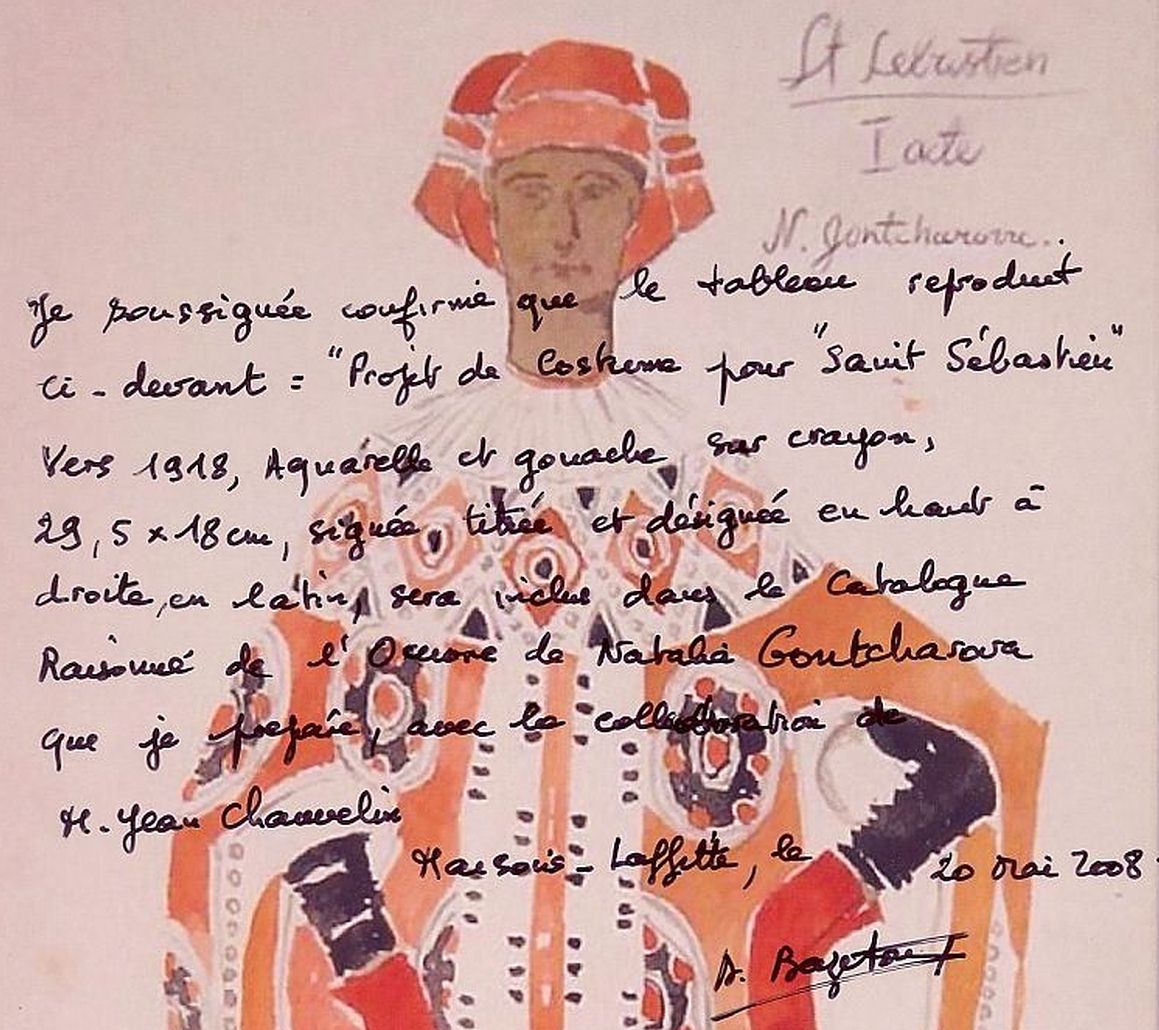 St Sebastien
I acte
N. Gontcharova.
Je soussignée confirme que le tableau reproduit
ci-devant = "Projet de Costume pour "Saint Sébastien"
Vers 1918, Aquarelle et gouache sur crayon,
29,5 x 18 cm, signée, titrée et désignée en haut à
droite, en latin, sera inclus dans le Catalogue
Raisonné de l'Oeuvre de Natalia Gontcharova
que je prépare, avec la collaboration de
M. Jean Chauvelin
Maisons-Laffitte, le 20 mai 2008
D. Bazetoux